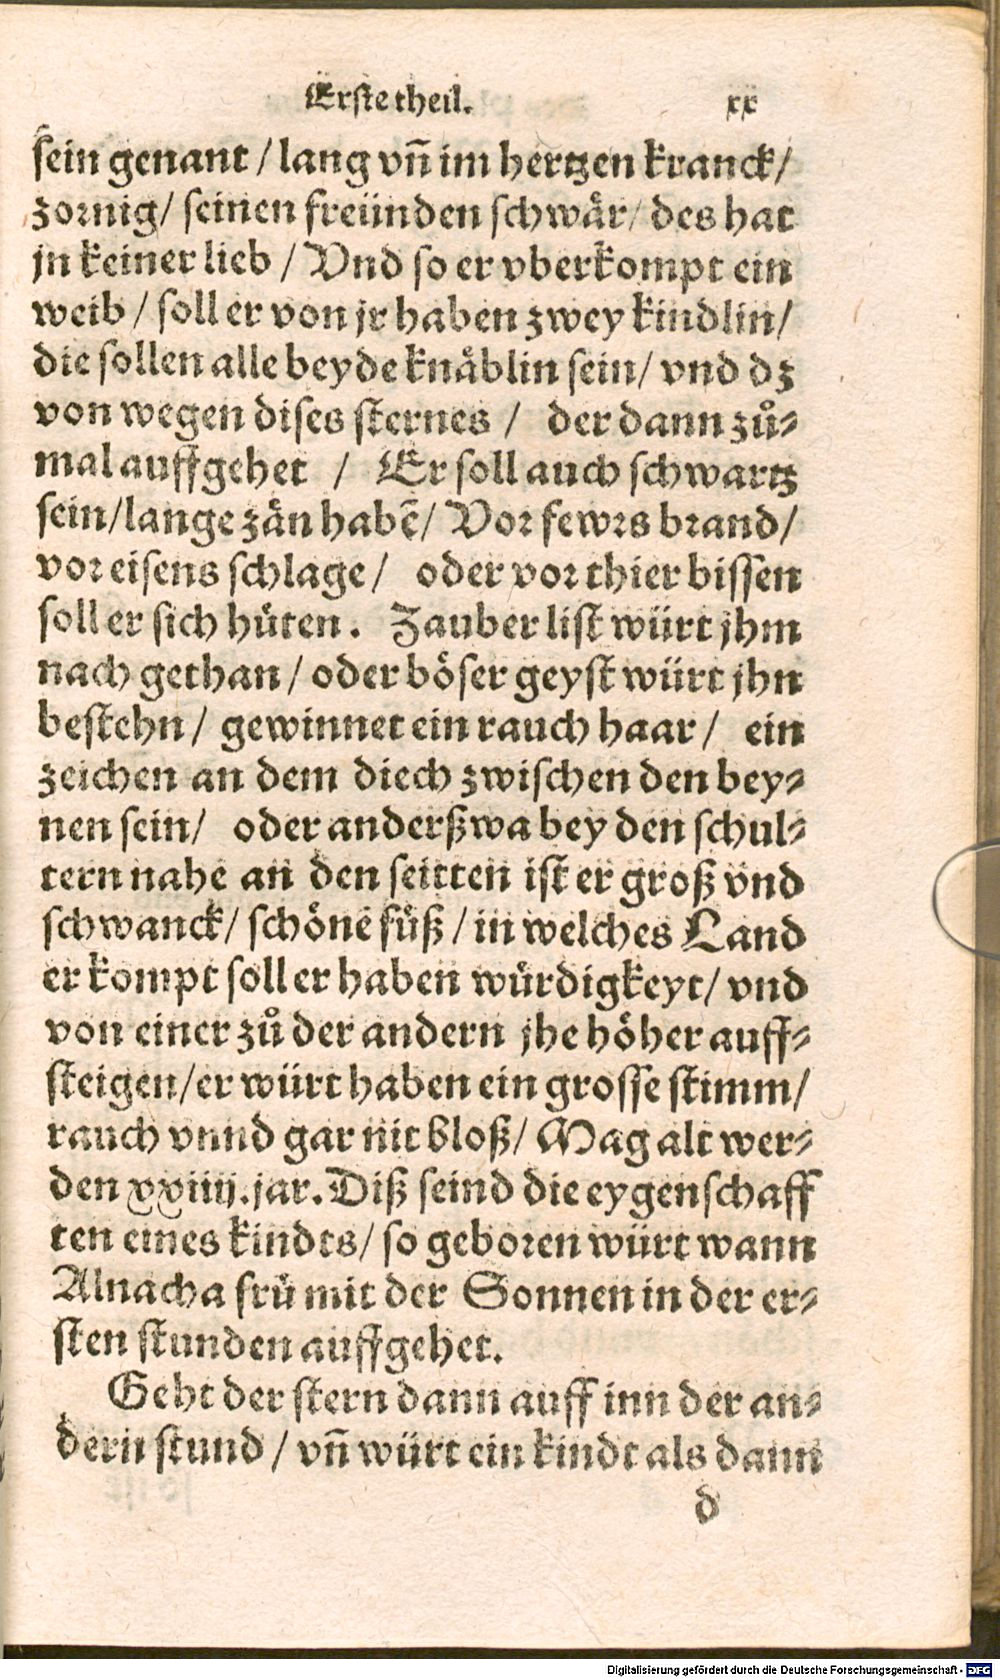 Erste theil. xx
sein genant / lang vñ im hertzen kranck/
zornig/ seinen freünden schwår/ des hat
jn keiner lieb / Vnd so er vberkompt ein
weib / soll er von jr haben zwey kindlin/
die sollen alle beyde knåblin sein/ vnd dz
von wegen dises sternes / der dann zů-
mal auffgehet / Er soll auch schwartz
sein/lange zån habē/ Vor fewrs brand/
vor eisens schlage/ oder vor thier bissen
soll er sich hüten. Zauber list würt jhm
nach gethan/ oder böser geyst würt jhn
bestehn/ gewinnet ein rauch haar/ ein
zeichen an dem diech zwischen den bey-
nen sein/ oder anderßwa bey den schul-
tern nahe an den seitten ist er groß vnd
schwanck/ schöne füß / in welches Land
er kompt soll er haben würdigkeyt/ vnd
von einer zů der andern jhe höher auff-
steigen/er würt haben ein grosse stimm/
rauch vnnd gar nit bloß/ Mag alt wer-
den xxiiij.jar. Diß seind die eygenschaff
ten eines kindts/ so geboren würt wann
Alnacha frü mit der Sonnen in der er-
sten stunden auffgehet.
Geht der stern dann auff inn der an-
dern stund / vñ würt ein kindt als dann
d
Digitalisierung gefördert durch die Deutsche Forschungsgemeinschaft - DFG